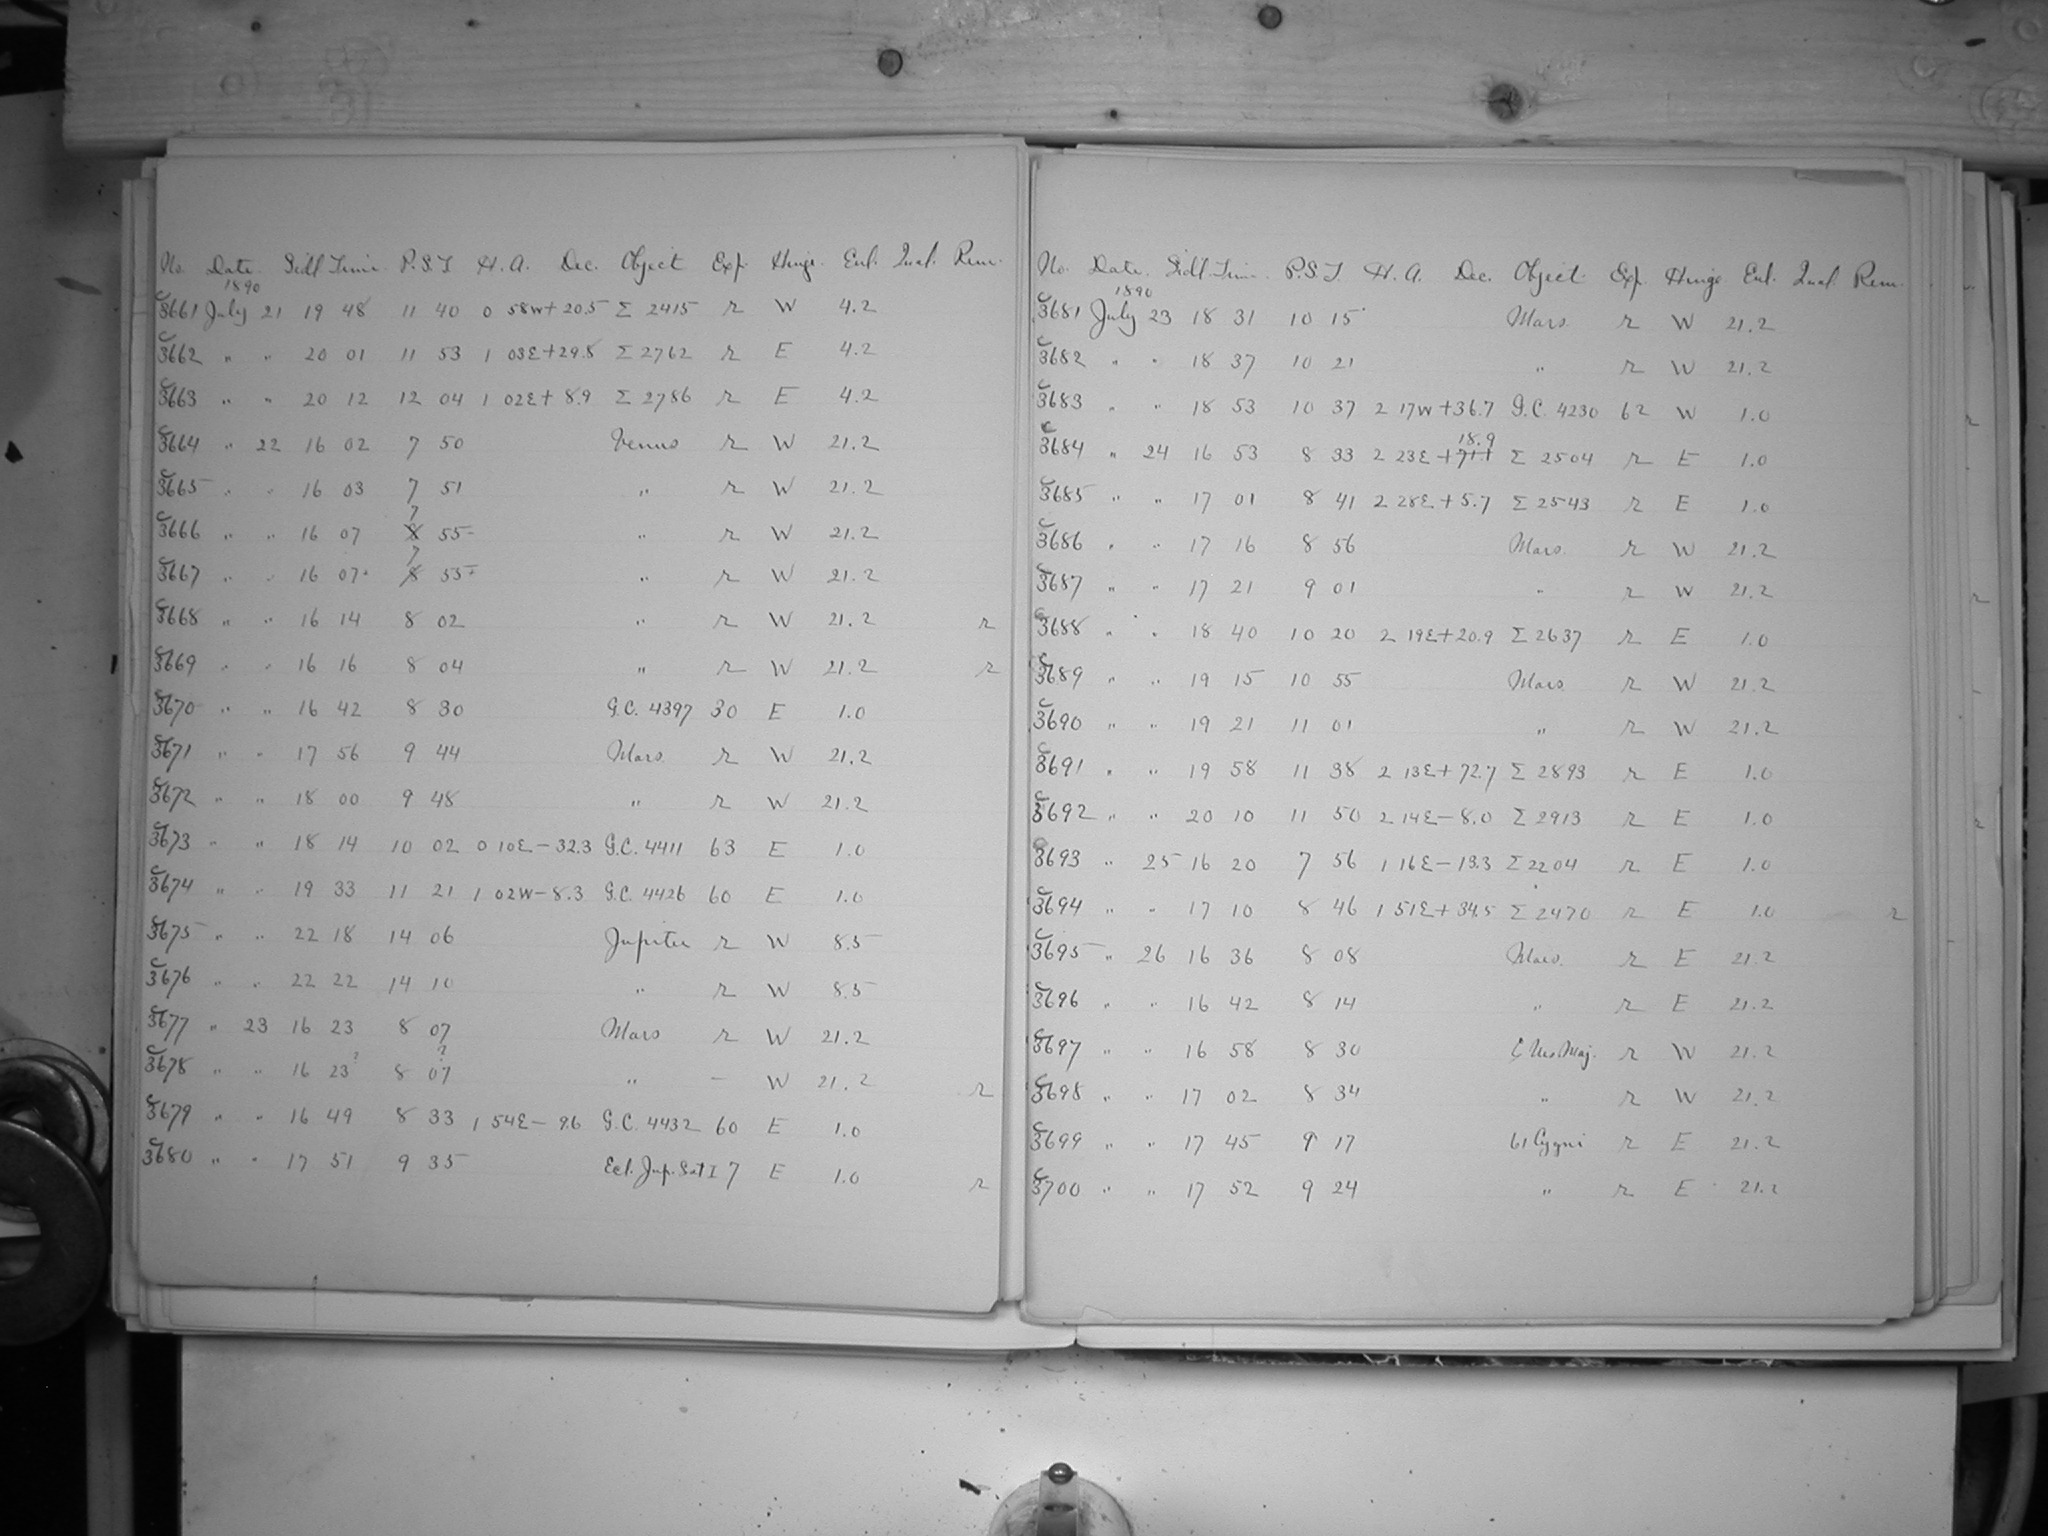 No. Date. Sidl. Time. P.S.T. H. A. Dec. Object Exp. Hinge. Enl. Qual. Rem.
1890
C3661 July 21 19 48 11 40 0 58W+20.5 Σ 2415 r W 4.2
C3662 " " 20 01 11 53 1 03E+29.8 Σ 2762 r E 4.2
C3663 " " 20 12 12 04 1 02E+ 8.9 Σ 2786 r E 4.2
C3664 " 22 16 02 7 50 Venus r W 21.2
C3665 " " 16 03 7 51 " r W 21.2
C3666 " " 16 07 7 55- " r W 21.2
C3667 " " 16 07+ 7 55+ " r W 21.2
C3668 " " 16 14 8 02 " r W 21.2 r
C3669 " " 16 16 8 04 " r W 21.2 r
C3670 " " 16 42 8 30 G.C. 4397 30 E 1.0
C3671 " " 17 56 9 44 Mars r W 21.2
C3672 " " 18 00 9 48 " r W 21.2
C3673 " " 18 14 10 02 0 10E-32.3 G.C. 4411 63 E 1.0
C3674 " " 19 33 11 21 1 02W-8.3 G.C. 4426 60 E 1.0
C3675 " " 22 18 14 06 Jupiter r W 8.5
C3676 " " 22 22 14 10 " r W 8.5
C3677 " 23 16 23 8 07 Mars r W 21.2
C3678 " " 16 23? 8 07? " - W 21.2 r
C3679 " " 16 49 8 33 1 54E- 9.6 G.C. 4432 60 E 1.0
C3680 " " 17 51 9 35 Ecl. Jup. Sat I 7 E 1.0 r
No. Date. Sidl. Time. P.S.T. H. A. Dec. Object Exp. Hinge Enl. Qual. Rem.
1890
C3681 July 23 18 31 10 15 Mars r W 21.2
C3682 " " 18 37 10 21 " r W 21.2
C3683 " " 18 53 10 37 2 17W+36.7 G.C. 4230 62 W 1.0
C3684 " 24 16 53 8 33 2 23E+18.9 Σ 2504 r E 1.0
C3685 " " 17 01 8 41 2 28E+5.7 Σ 2543 r E 1.0
C3686 " " 17 16 8 56 Mars r W 21.2
C3687 " " 17 21 9 01 " r W 21.2
C3688 " " 18 40 10 20 2 19E+20.9 Σ 2637 r E 1.0
C3689 " " 19 15 10 55 Mars r W 21.2
C3690 " " 19 21 11 01 " r W 21.2
C3691 " " 19 58 11 38 2 13E+72.7 Σ 2893 r E 1.0
C3692 " " 20 10 11 50 2 14E-8.0 Σ 2913 r E 1.0
C3693 " 25 16 20 7 56 1 16E-13.3 Σ 2204 r E 1.0
C3694 " " 17 10 8 46 1 51E+34.5 Σ 2470 r E 1.0 r
C3695 " 26 16 36 8 08 Mars. r E 21.2
C3696 " " 16 42 8 14 " r E 21.2
C3697 " " 16 58 8 30 ζ Urs. Maj. r W 21.2
C3698 " " 17 02 8 34 " r W 21.2
C3699 " " 17 45 9 17 61 Cygni r E 21.2
C3700 " " 17 52 9 24 " r E 21.2